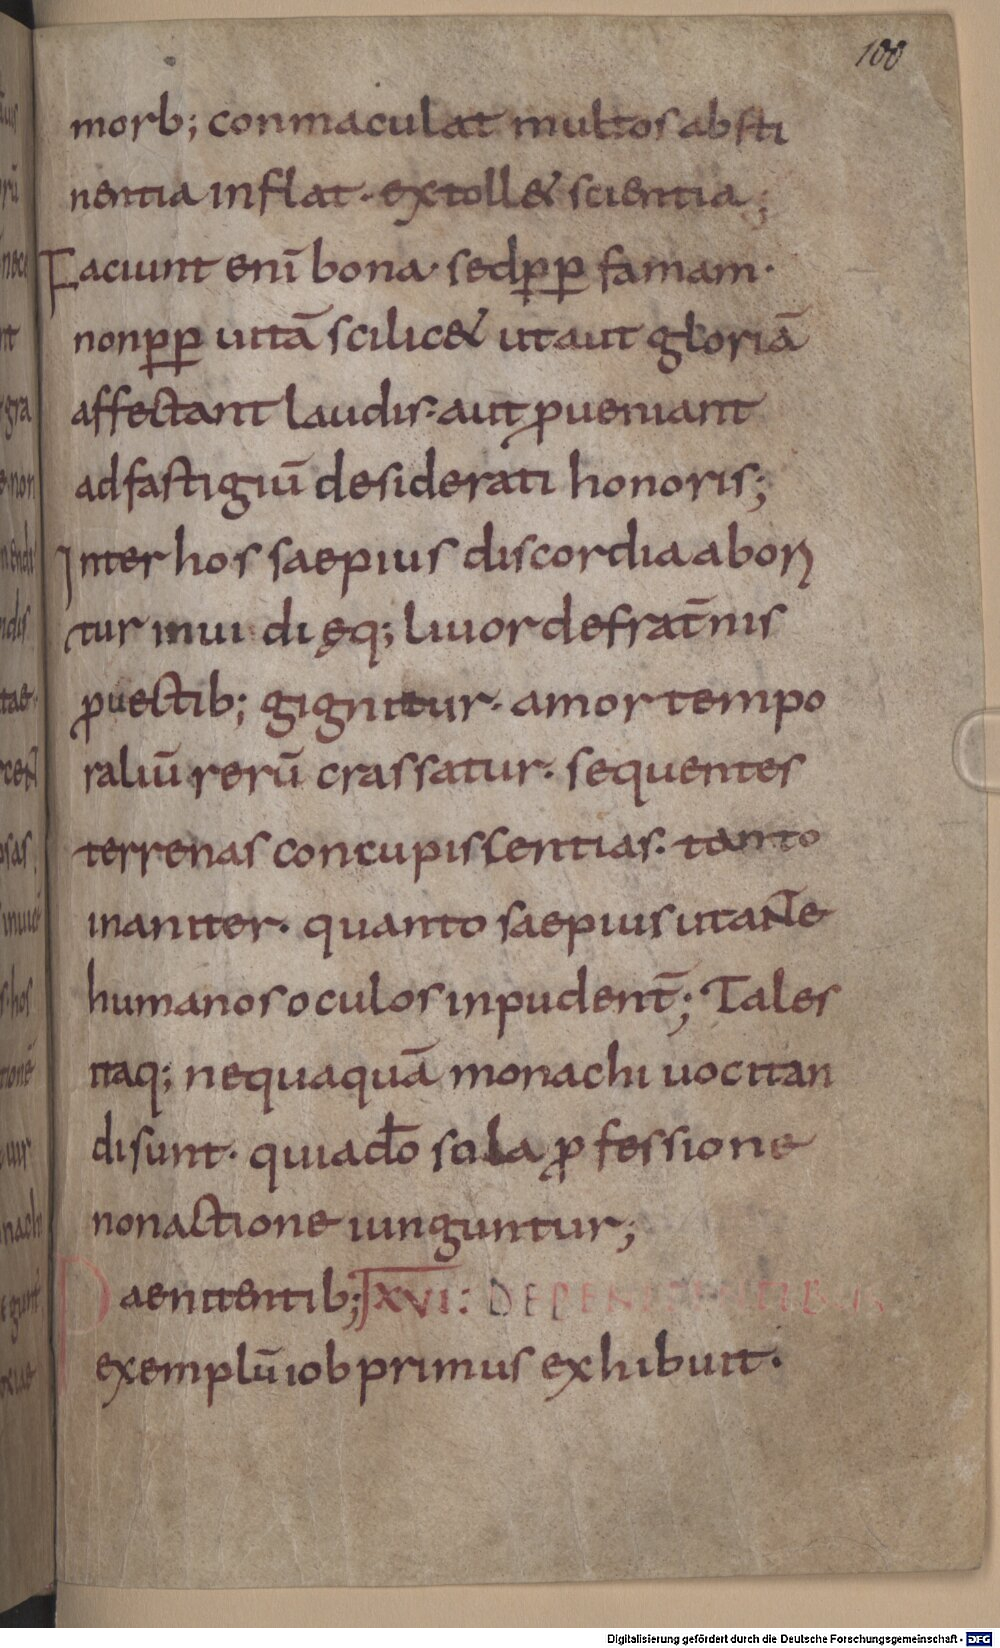 100
morb; conmaculat multos absti
nentia inflat· extoll& scientia;
Faciunt enī bona· sedꝓꝓ famam·
nonꝓꝓ uitā scilic& ut aut gloriā
affectant laudis· aut ꝓueniant
adfastigiū desiderati honoris;
Inter hos saepius discordia abori
tur inui di ęq; liuor defrat̄nis
ꝓuectib; gignitur· amor tempo
raliū rerū crassatur· sequentes
terrenas concupiscentias· tanto
inaniter· quanto saepius ut ante
humanos oculos inpudent̄; Tales
itaq; nequaquā monachi uocitan
di sunt· quia dō sola ꝓfessione
non actione iunguntur;
Paenitentib; XVI: DEPENITENTIBUS
exemplū iob primus exhibuit·
Digitalisierung gefördert durch die Deutsche Forschungsgemeinschaft - DFG